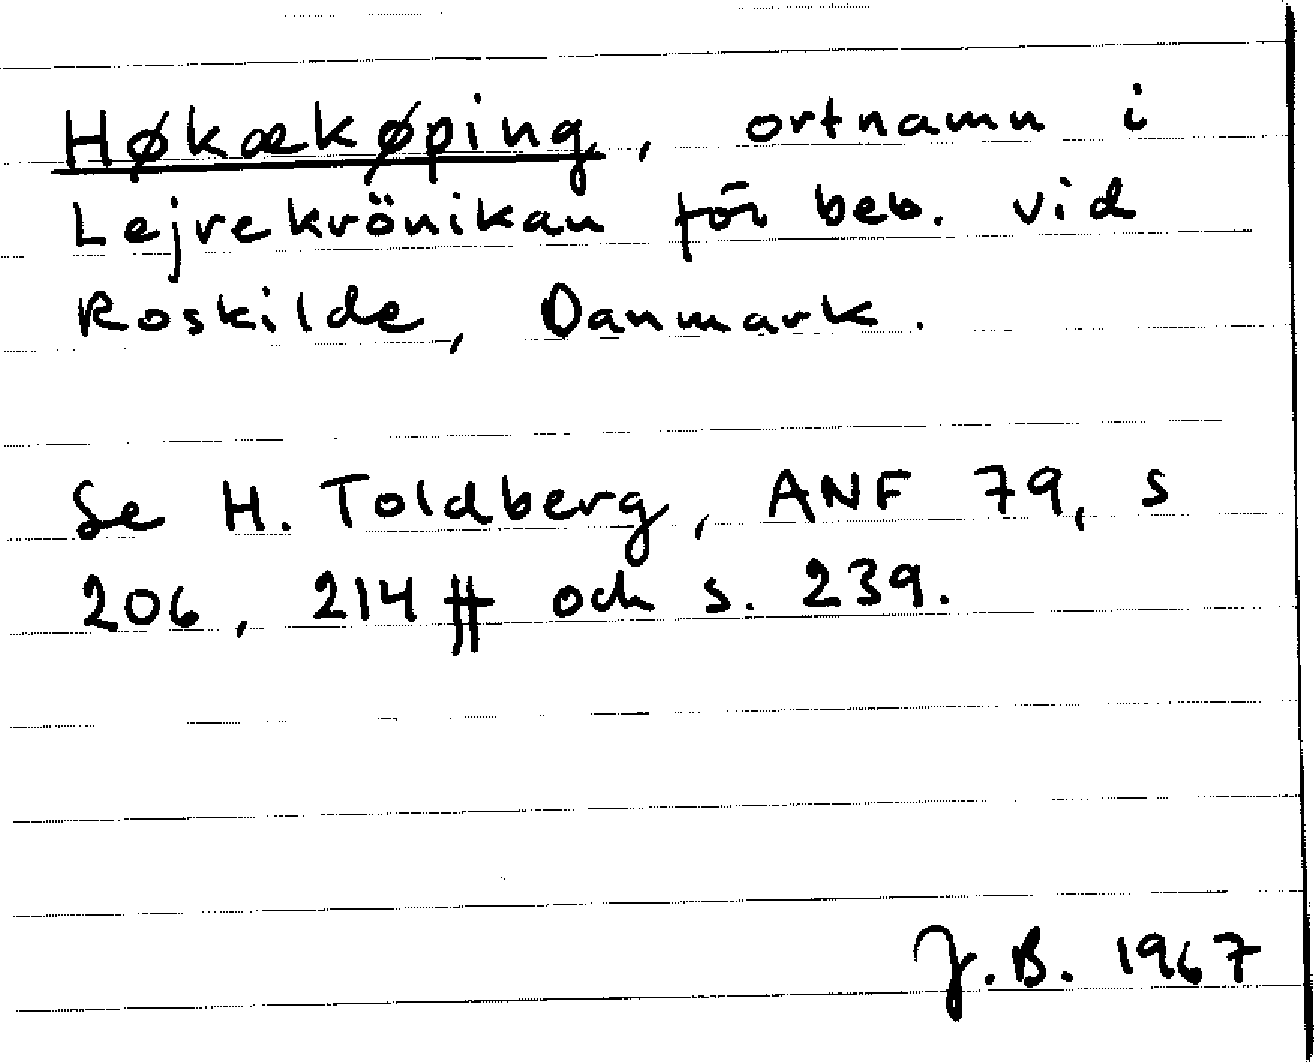 Høkækøping, ortnamn i
Lejrekrönikan för beb. vid
Roskilde, Danmark.
Se H. Toldberg, ANF 79, s
206, 214 ff och s. 239.
J.B. 1967